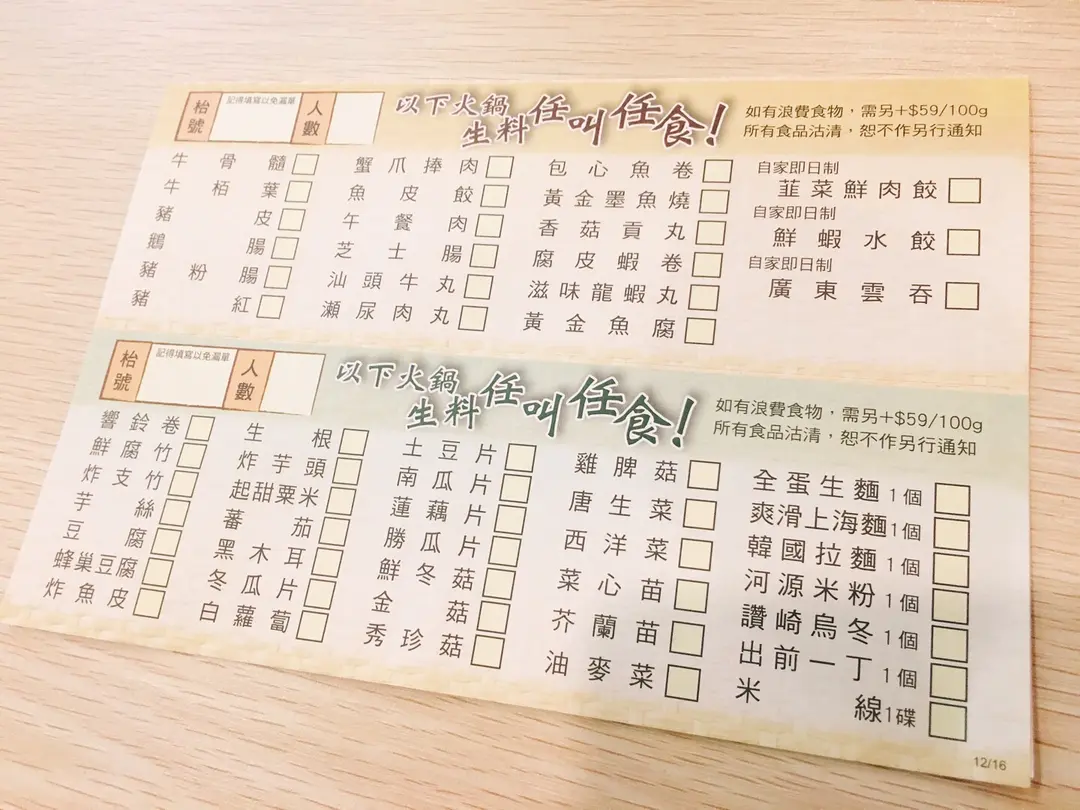 枱號
記得填寫以免漏單
人數
以下火鍋生料任叫任食!
如有浪費食物，需另+$59/100g
所有食品沽清，恕不作另行通知
牛骨髓
牛栢葉
豬皮
鵝腸
豬粉腸
豬紅
蟹爪捧肉
魚皮餃
午餐肉
芝士腸
汕頭牛丸
瀨尿肉丸
包心魚卷
黃金墨魚燒
香菇貢丸
腐皮蝦卷
滋味龍蝦丸
黃金魚腐
自家即日制
韮菜鮮肉餃
自家即日制
鮮蝦水餃
自家即日制
廣東雲吞
枱號
記得填寫以免漏單
人數
以下火鍋生料任叫任食!
如有浪費食物，需另+$59/100g
所有食品沽清，恕不作另行通知
響鈴卷
鮮腐竹
炸支竹
芋絲
豆腐
蜂巢豆腐
炸魚皮
生根
炸芋頭
起甜粟米
蕃茄
黑木耳
冬瓜片
白蘿蔔
土豆片
南瓜片
蓮藕片
勝瓜片
鮮冬菇
金菇
秀珍菇
雞脾菇
唐生菜
西洋菜
菜心苗
芥蘭苗
油麥菜
全蛋生麵1個
爽滑上海麵1個
韓國拉麵1個
河源米粉1個
讚崎烏冬1個
出前一丁1個
米線1碟
12/16